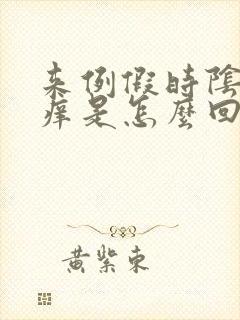 来例假時陰
痒是怎麼回
黄紫東